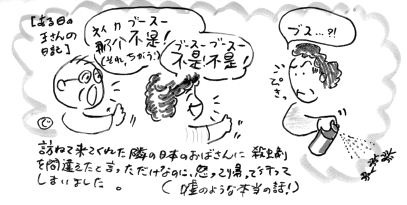 【ある日の
王さんの
日記】
ネイガ ブースー
那个不是!
(それ、ちがう!)
ブースー ブースー
不是!不是!
ブス…?!
訪ねて来てくれた隣の日本のおばさんに殺虫剤
を間違えたと言っただけなのに、怒って帰って行って
しまいました。(嘘のような本当の話!)